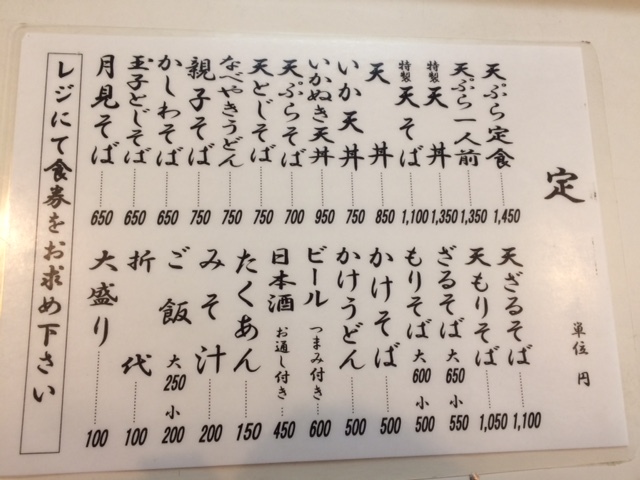 定
単位 円
天ぷら定食 1,450
天ぷら一人前 1,350
特製 天丼 1,350
特製 天そば 1,100
天丼 850
いか天丼 750
いかぬき天丼 950
天ぷらそば 700
天とじそば 750
なべやきうどん 750
親子そば 750
かしわそば 650
玉子とじそば 650
月見そば 650
天ざるそば 1,100
天もりそば 1,050
ざるそば 大 650 小 550
もりそば 大 600 小 500
かけそば 500
かけうどん 500
ビール つまみ付き 600
日本酒 お通し付き 450
たくあん 150
みそ汁 200
ご飯 大 250 小 200
折代 100
大盛り 100
レジにて食券をお求め下さい